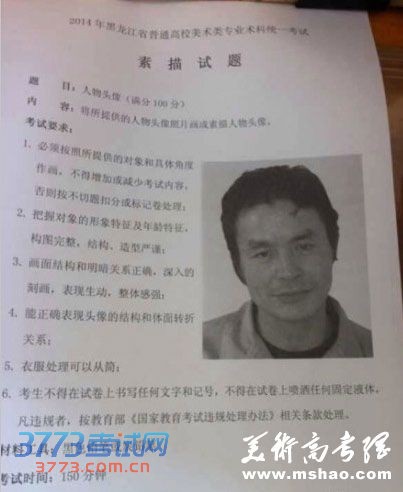 2014年黑龙江省普通高校美术类专业术科统一考试
素描试题
题 目：人物头像（满分100分）
内 容：将所提供的人物头像照片画成素描人物头像。
考试要求：
1、必须按照所提供的对象和具体角度
作画，不得增加或减少考试内容，
否则按不切题扣分或标记卷处理；
2、把握对象的形象特征及年龄特征，
构图完整，结构、造型严谨；
3、画面结构和明暗关系正确，深入的
刻画，表现生动，整体感强；
4、能正确表现头像的结构和体面转折
关系；
5、衣服处理可以从简；
6、考生不得在试卷上书写任何文字和记号，不得在试卷上喷洒任何固定液体，
凡违规者，按教育部《国家教育考试违规处理办法》相关条款处理。
材料工具：
考试时间：150分钟
3773考试网
www.3773.com.cn
美术高考网
www.mshao.com